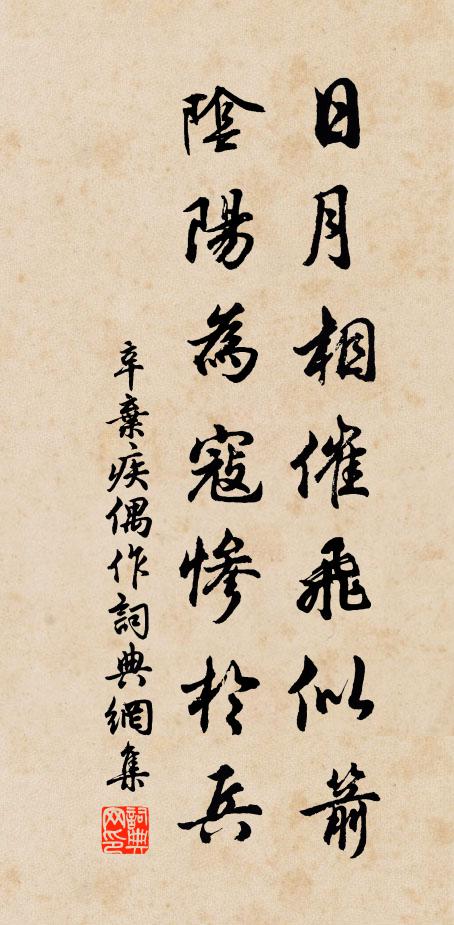 日月相催飛似箭
陰陽為寇慘於兵
辛棄疾偶作詞典網集
詞典網印